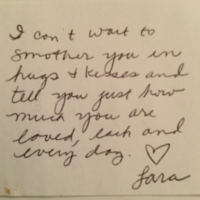 I can't wait to
smother you in
hugs + kisses and
tell you just how
much you are
loved, each and
every day. ♡
Lara